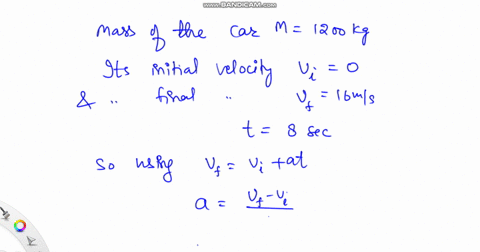 WWW.BANDICAM.COM
Mass of the car M = 1200 kg
Its initial velocity Vi = 0
& " final " Vf = 16 m/s
t = 8 sec
So using Vf = Vi + at
a = Vf - Vi /